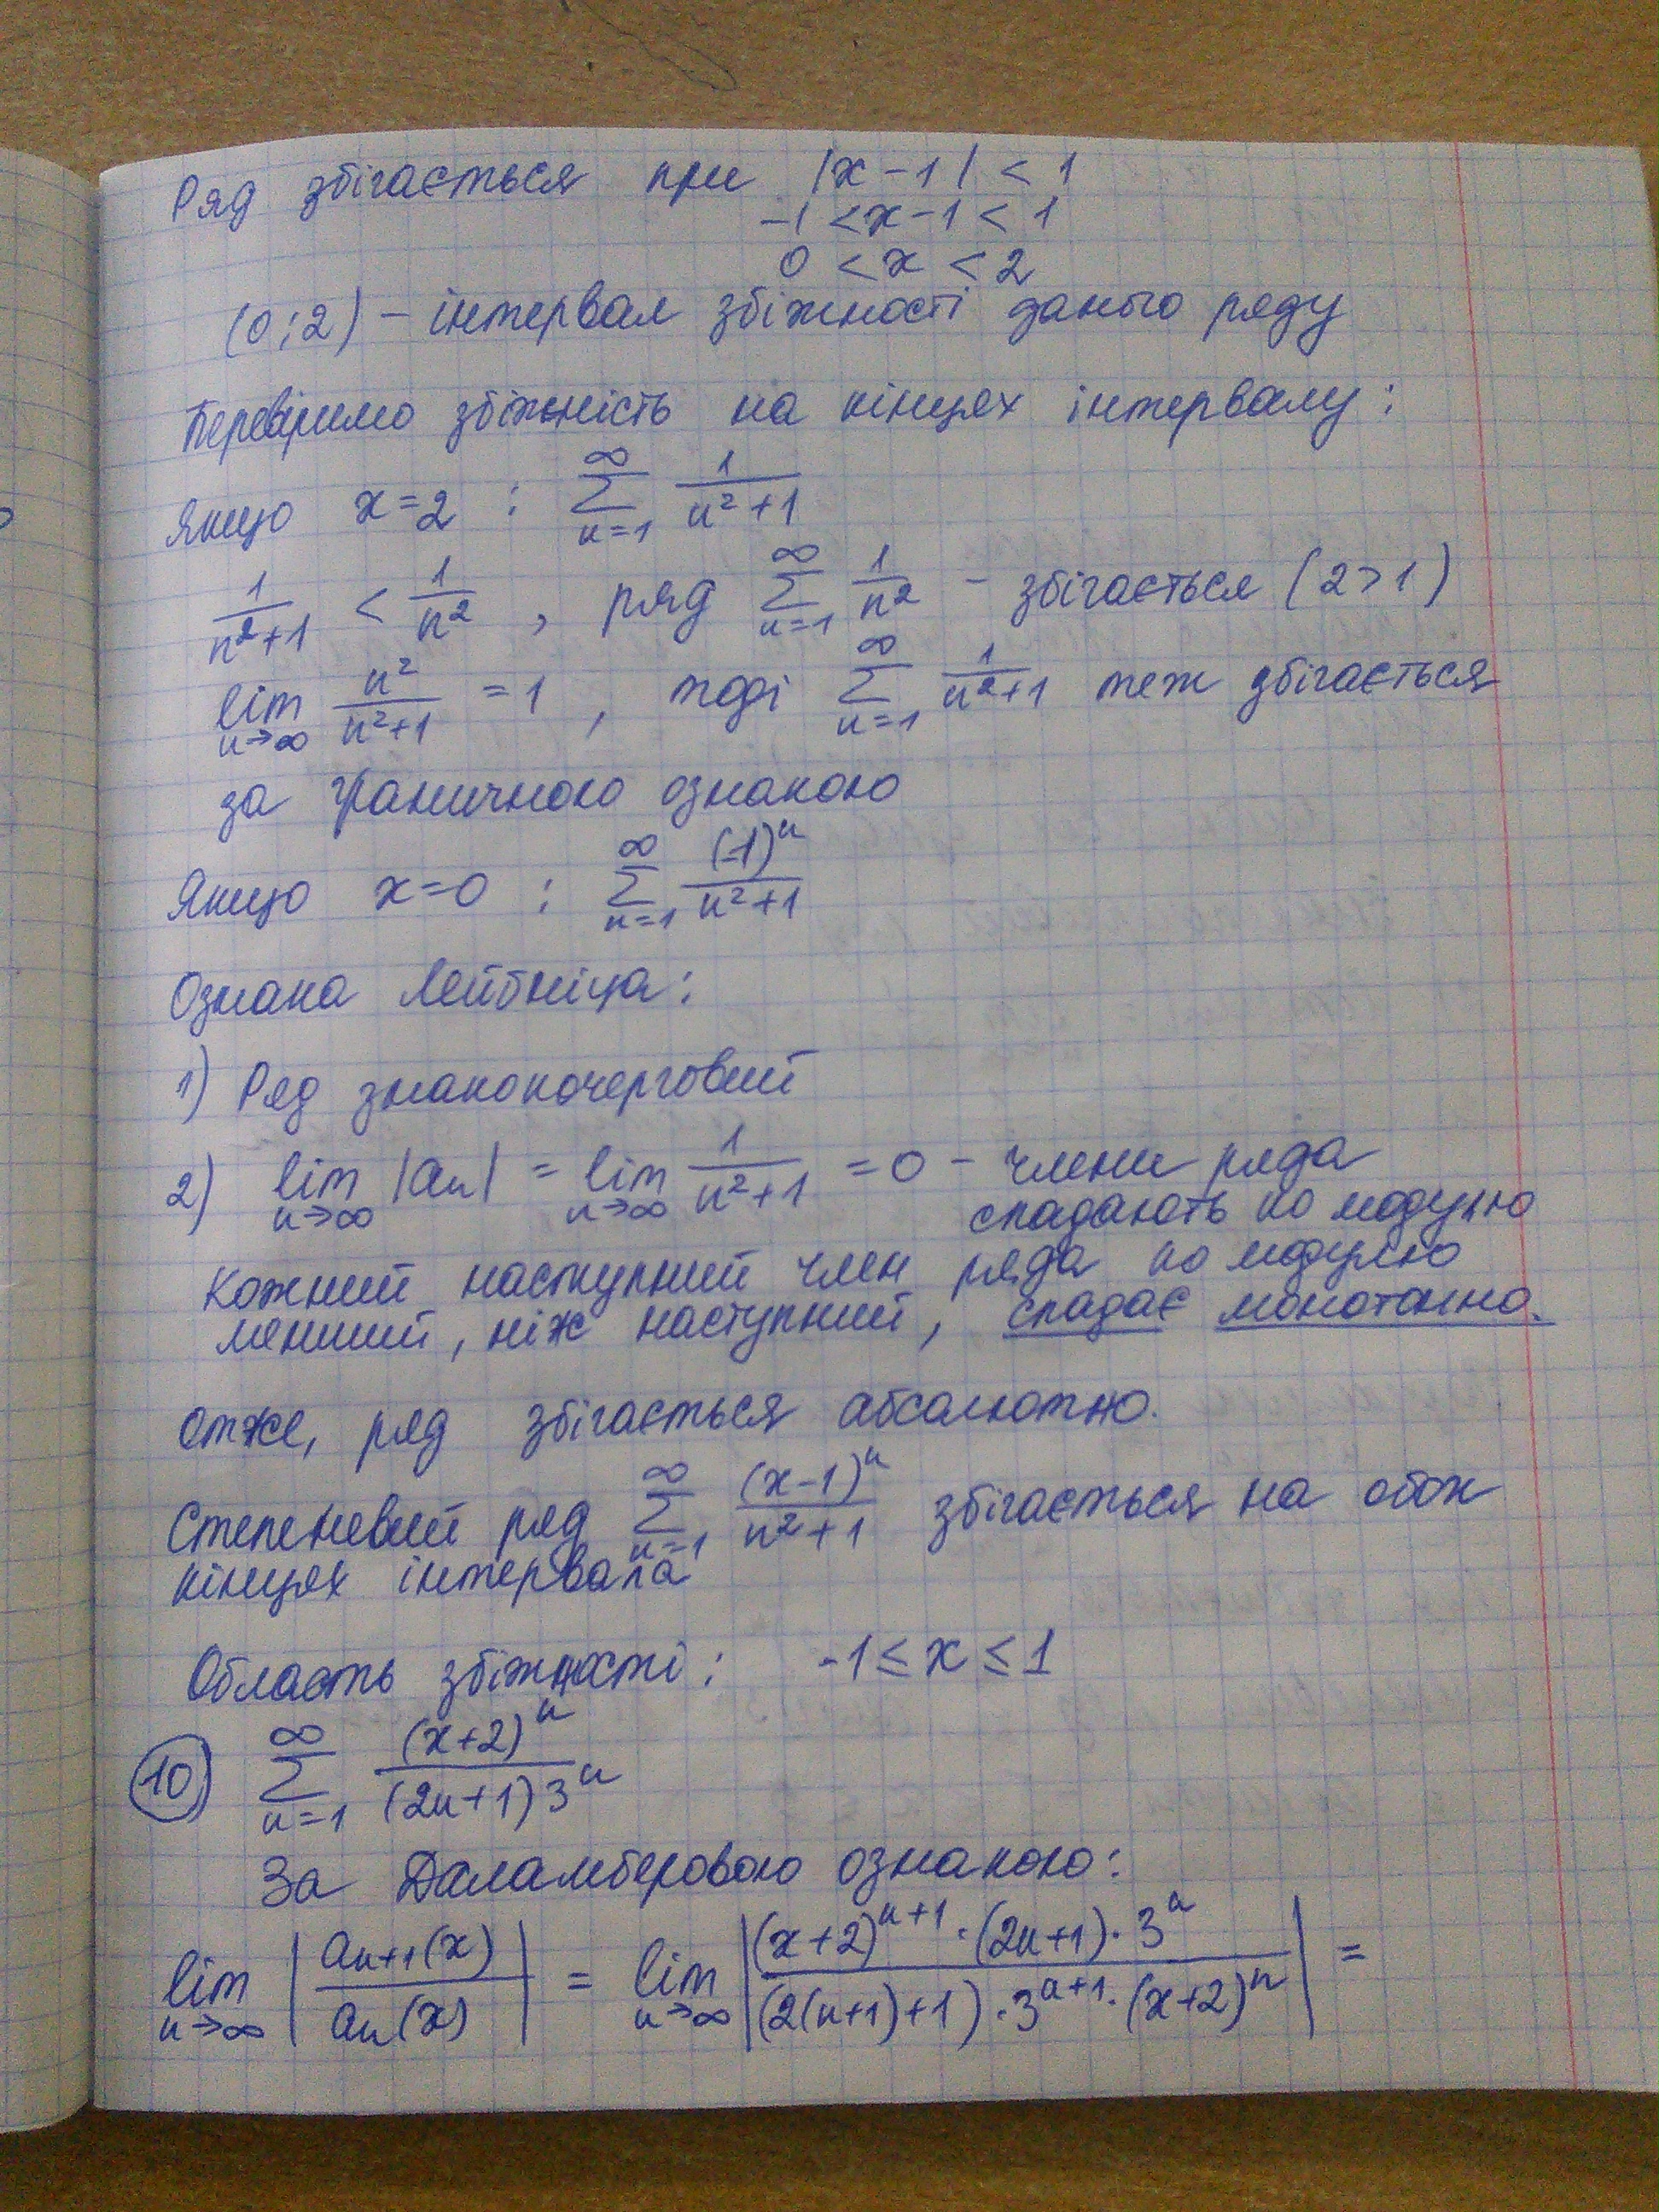 Ряд збігається при |x-1| < 1
-1 < x-1 < 1
0 < x < 2
(0;2) – інтервал збіжності даного ряду
Перевіримо збіжність на кінцях інтервалу:
Якщо x=2 : ∑_{n=1}^{∞} 1/(n²+1)
1/(n²+1) < 1/n² , ряд ∑_{n=1}^{∞} 1/n² - збігається (2>1)
lim_{n→∞} n²/(n²+1) = 1 , тоді ∑_{n=1}^{∞} 1/(n²+1) теж збігається
за граничною ознакою
Якщо x=0 : ∑_{n=1}^{∞} (-1)^n/(n²+1)
Ознака Лейбніца:
1) Ряд знакопочерговий
2) lim_{n→∞} |an| = lim_{n→∞} 1/(n²+1) = 0 – члени ряда
спадають по модулю
Кожний наступний член ряда по модулю
менший, ніж наступний, спадає монотонно.
Отже, ряд збігається абсолютно.
Степеневий ряд ∑_{n=1}^{∞} (x-1)^n/(n²+1) збігається на обох
кінцях інтервала
Область збіжності: -1 ≤ x ≤ 1
10) ∑_{n=1}^{∞} (x+2)^n/((2n+1)3^n)
За Даламберовою ознакою:
lim_{n→∞} |a_{n+1}(x)/a_n(x)| = lim_{n→∞} |(x+2)^{n+1}·(2n+1)·3^n/((2(n+1)+1)·3^{n+1}·(x+2)^n)| =